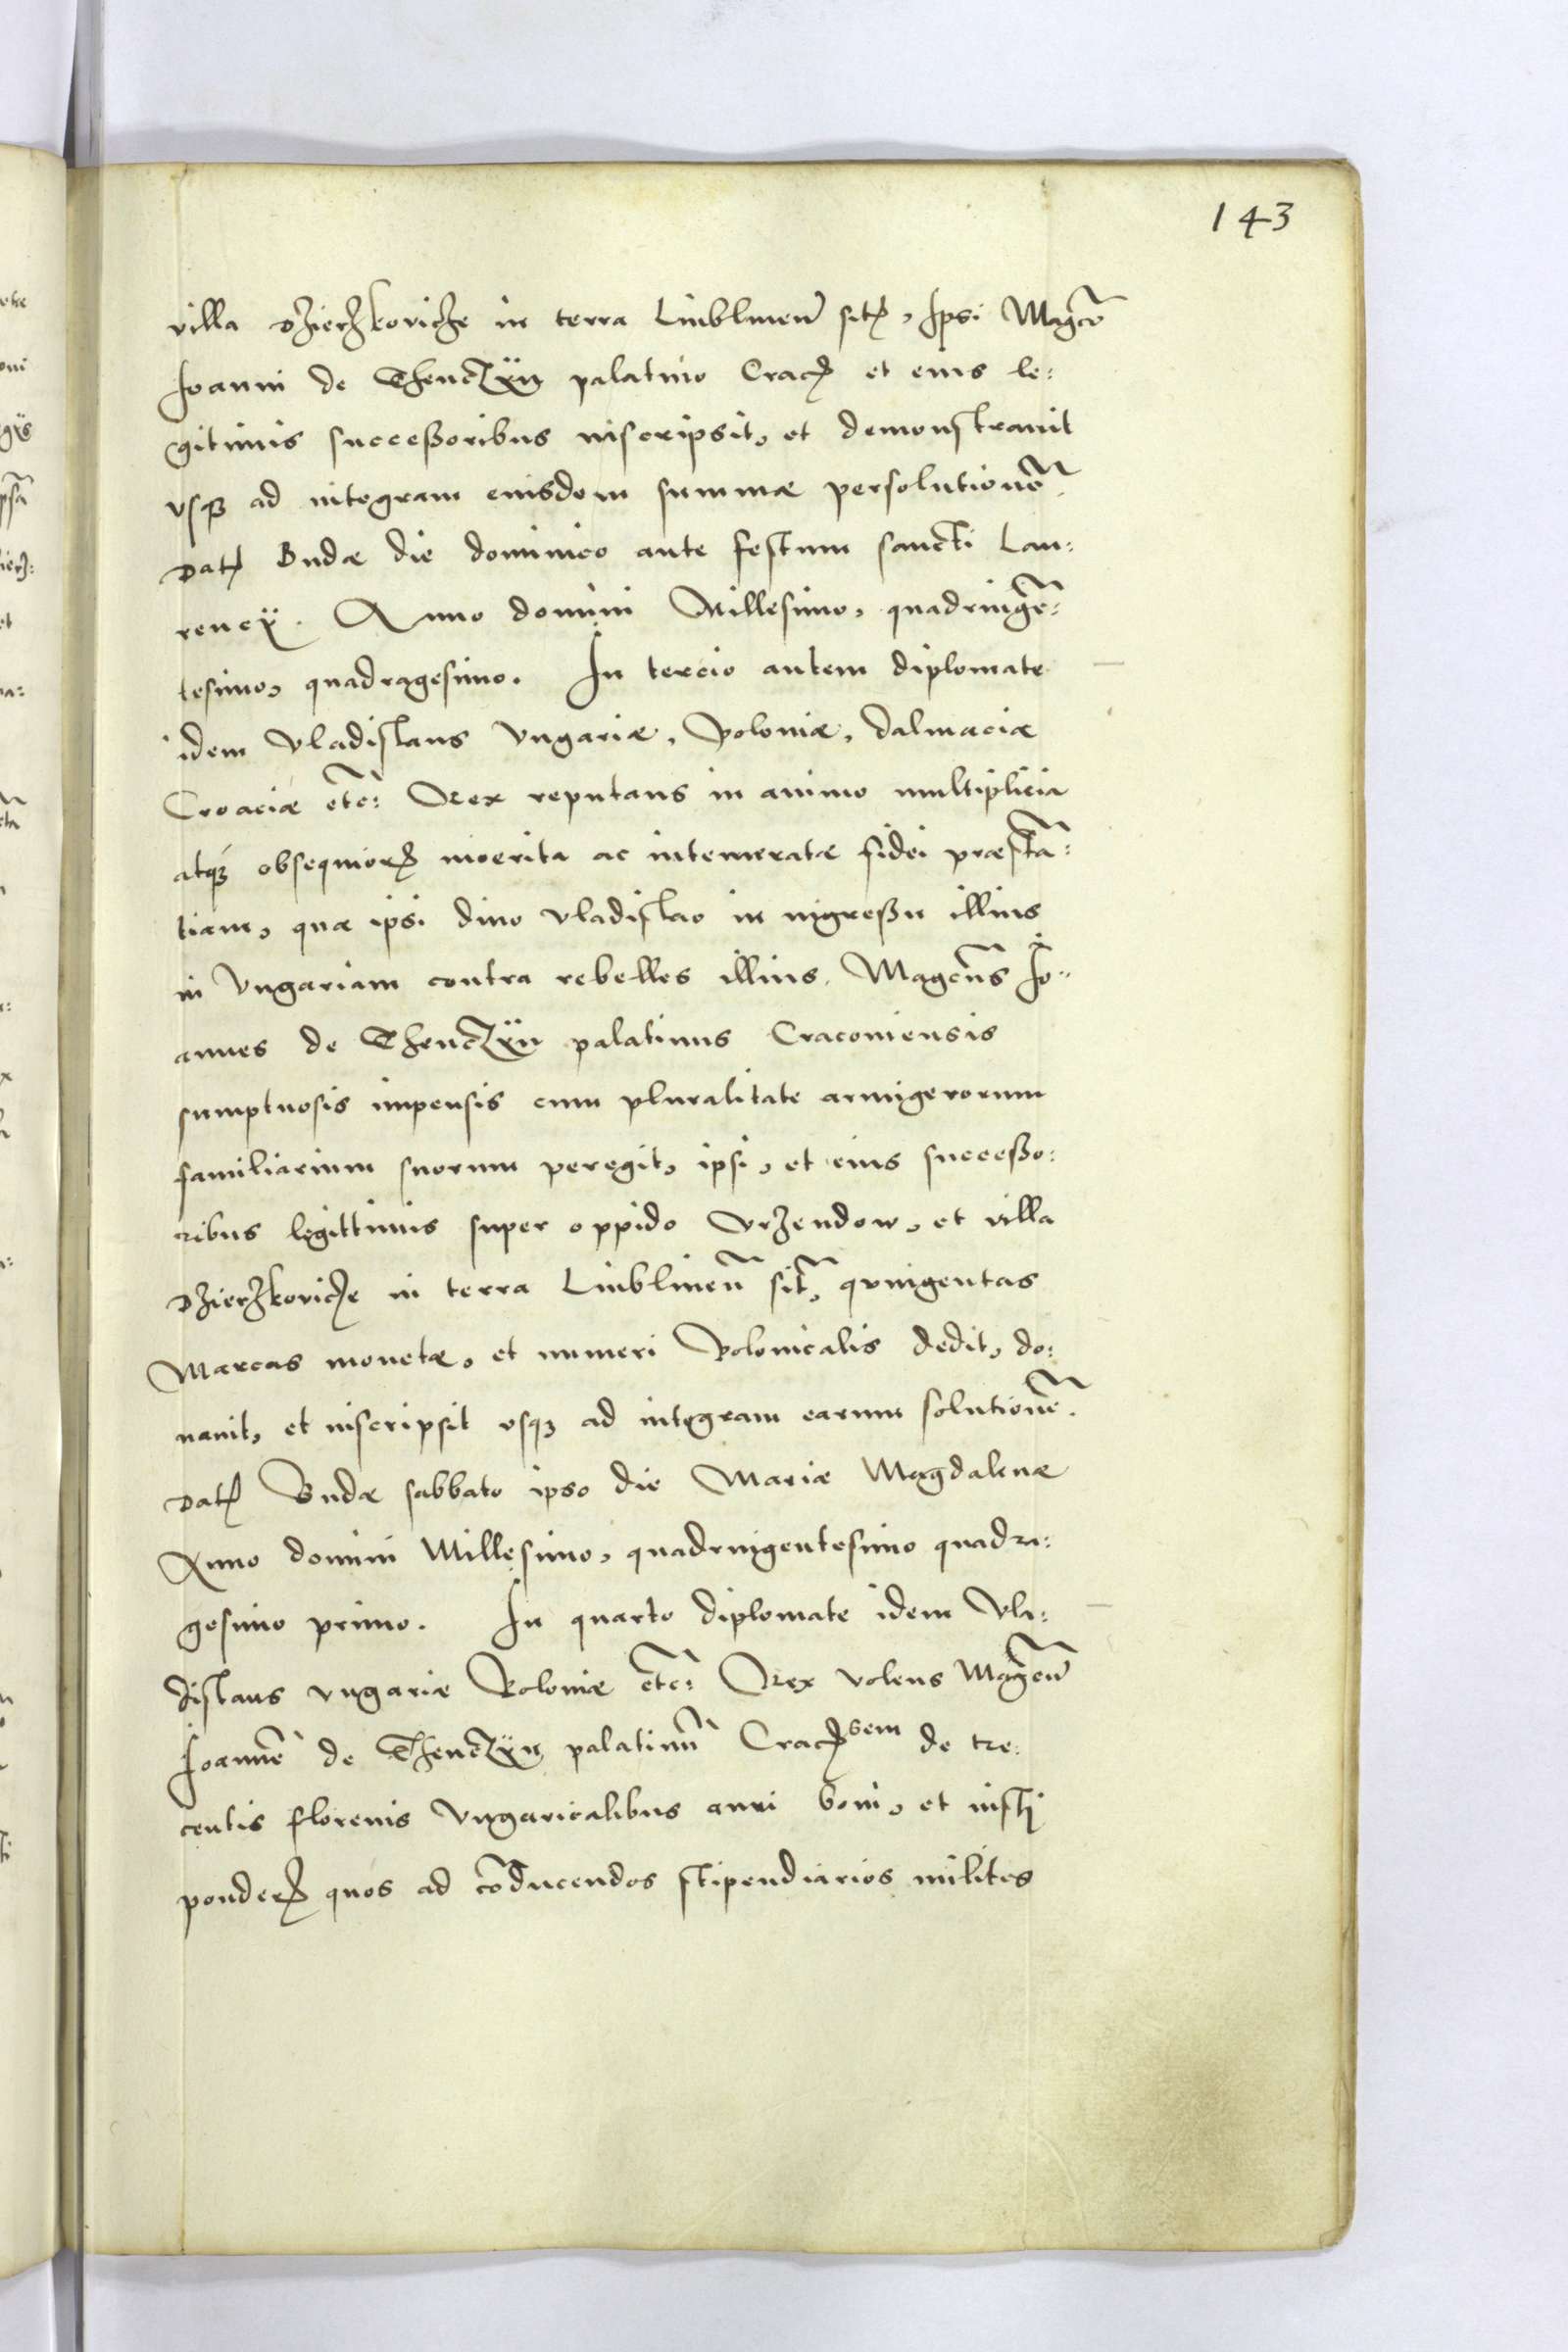 143
villa Dzierzkovicze in terra Lublinen̄ sitꝭ, Ipsi Magco
Ioanni de Thenczÿn palatino Cracꝭ et eius le:
gitimis successoribus inscripsit, et demonstrauit
vsqꝫ ad integram eiusdem summæ persolutionē.
Datꝭ Budæ die dominico ante festum sancti Lau:
rencÿ. Anno domini Millesimo, quadringē:
tesimo, quadragesimo. In tercio autem diplomate
idem Vladislaus Vngariæ, Poloniæ, Dalmaciæ
Croaciæ etc: Rex reputans in animo multiplicia
atqꝫ obsequiorꝭ merita ac intemeratæ fidei præstā:
tiam, quæ ipsi diuo Vladislao in ingressu illius
in Vngariam contra rebelles illius, Magcūs Io:
annes de Thenczÿn palatinus Cracouiensis
sumptuosis impensis cum pluralitate armigerorum
familiarium suorum peregit, ipsi, et eius successo:
ribus legittimis super oppido Vrzendow, et villa
Dzierzkovicze in terra Lublinen̄ sit̄, quingentas
Marcas monetæ, et numeri Polonicalis dedit, do:
nauit, et inscripsit vsqꝫ ad integram earum solutionē.
Datꝭ Budæ sabbato ipso die Mariæ Magdalenæ
Anno domini Millesimo, quadringentesimo quadra:
gesimo primo. In quarto diplomate idem Vla:
dislaus Vngariæ Poloniæ etc: Rex volens Magcum
Ioannē de Thenczÿn palatinū Cracꝭsem de tre:
centis florenis Vngaricalibus auri boni, et iusti
ponderꝭ quos ad cōducendos stipendiarios milites